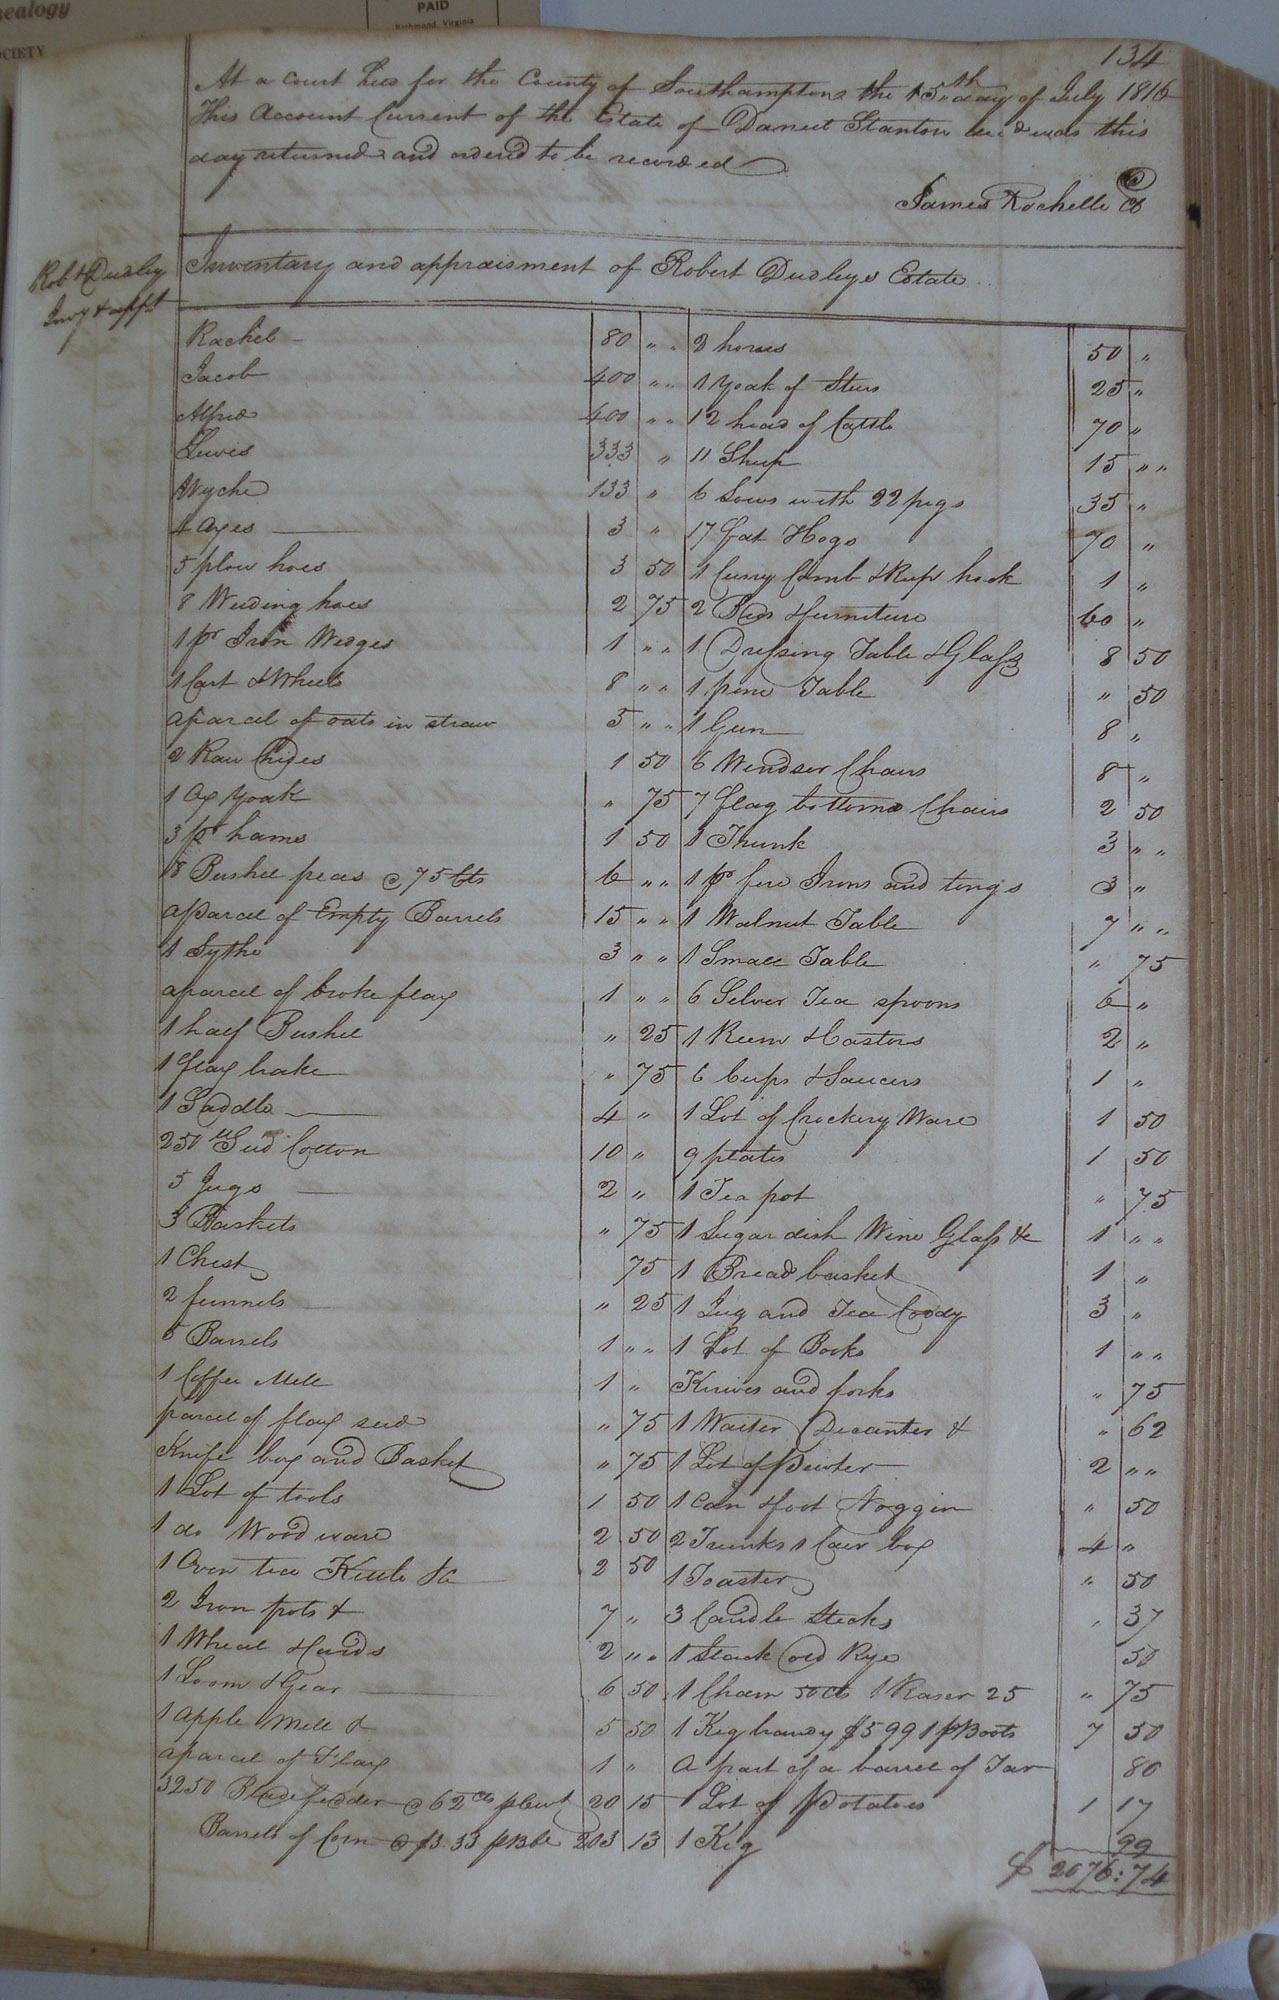 nealogy
OCIETY
PAID
Richmond, Virginia
134
At a court held for the County of Southampton the 15th day of July 1816
This Account Current of the Estate of Daniel Stanton decd was this
day returned and ordered to be recorded
James Rochelle C
Robt Dudley
Invy & appt
Inventary and appraisment of Robert Dudleys Estate
Rachel 80 " " 3 horses 50 "
Jacob 400 " " 1 Yoak of Steers 25 "
Alfred 400 " " 12 head of Cattle 70 "
Lewis 333 " 11 Sheep 15 " "
Wyche 133 " 6 Sows with 22 pigs 35 "
4 axes 3 " 17 fat Hogs 70 "
5 plow hoes 3 50 1 Curry Comb & Reap hook 1 "
8 Weeding hoes 2 75 2 Beds & furniture 60 "
1 pr Iron Wedges 1 " " 1 Dressing Table & Glass 8 50
1 Cart & Wheels 8 " " 1 pine Table " 50
a parcel of oats in straw 5 " " 1 Gun 8 "
2 Raw hides 1 50 6 Windsor Chairs 8 "
1 Ox Yoak " 75 7 flag bottomd Chairs 2 50
3 pr hams 1 50 1 Trunk 3 " "
8 Bushel peas @ 75 Cts 6 " " 1 pr fire Irons and tongs 3 "
a parcel of Empty Barrels 15 " " 1 Walnut Table 7 " "
1 Sythe 3 " " 1 Small Table " 75
a parcel of broke flax 1 " " 6 Silver Tea spoons 6 "
1 half Bushel " 25 1 & Castors 2 "
1 flax brake " 75 6 Cups & Saucers 1 "
1 Saddle 4 " 1 Lot of Crockery Ware 1 50
250 lb Seed Cotton 10 " 9 plates 1 50
5 Jugs 2 " 1 Tea pot " 75
3 Baskets " 75 1 Sugar dish Wine Glass &c 1 " "
1 Chest 75 1 Bread basket 1 "
2 funnels " 25 1 Jug and Tea Coody 3 "
5 Barrels 1 " " 1 Lot of Books 1 " "
1 Coffee Mill 1 " Knives and forks " 75
parcel of flax seed " 75 1 Waiter Decanter & " 62
Knife box and Basket " 75 1 Lot of Pewter 2 " "
1 Lot of tools 1 50 1 Can & foot Noggin " 50
1 do Wood ware 2 50 2 Trunks 1 box 4 "
1 Oven tea Kittle &c 2 50 1 Toaster " 50
2 Iron pots & 7 " 3 Candle Sticks " 37
1 Wheel & Cards 2 " " 1 Stack old Rye 50
1 Loom & Gear 6 50 1 Churn 50 cts 1 Raser 25 " 75
1 apple Mill & 5 50 1 Keg brandy $5 99 1 p Boots 7 50
a parcel of Flax 1 " A part of a barrel of Tar 80
3250 Blade fodder @ 62 cts pCwt 20 15 1 Lot of Potatoes 1 17
Barrels of Corn @ $3.33 p Bbl 203 13 1 Keg 99
$ 2076:74